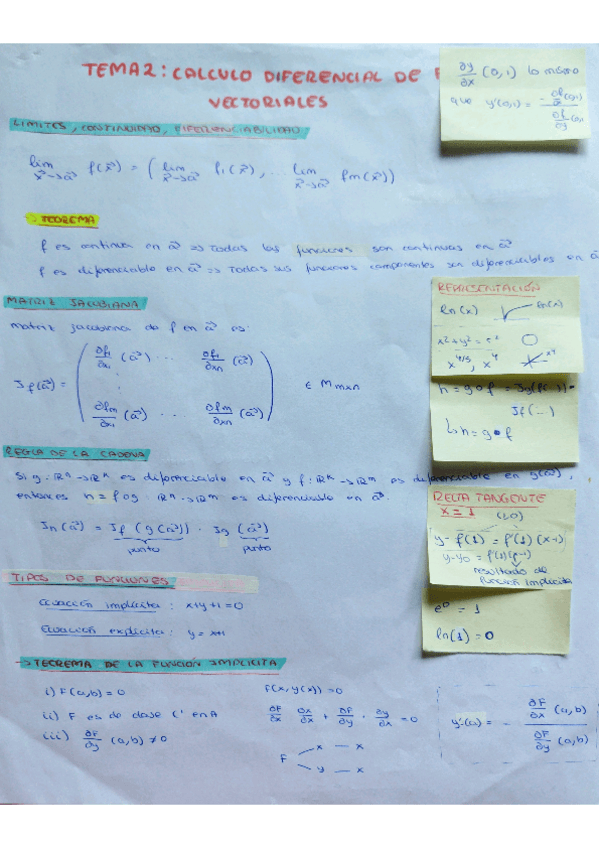 TEMA 2: CALCULO DIFERENCIAL DE F
VECTORIALES
∂y/∂x (0,1) lo mismo
que y'(0,1) = - ∂f/∂x (0,1) / ∂f/∂y (0,1
LIMITES, CONTINUIDAD, DIFERENCIABILIDAD
lim x→a f(x) = ( lim x→a f1(x), ... lim x→a fm(x))
→ TEOREMA
f es continua en a ⇒ Todas las funciones son continuas en a
f es diferenciable en a ⇒ Todas sus funciones componentes son diferenciables en a
MATRIZ JACOBIANA
matriz jacobiana de f en a es:
Jf(a) = ( ∂f1/∂x1 (a) ... ∂f1/∂xn (a)
∂fm/∂x1 (a) ... ∂fm/∂xn (a) ) ∈ Mmxn
REPRESENTACIÓN
ln(x) ln(x)
x² + y² = r²
x^4/3, x^4 x^4
h = g∘f = Jg(f(...)) ·
Jf(...)
↳ h = g∘f
REGLA DE LA CADENA
Si g: ℝn → ℝk es diferenciable en a y f: ℝk → ℝm es diferenciable en g(a),
entonces h = f∘g: ℝn → ℝm es diferenciable en a.
Jh(a) = Jf (g(a)) · Jg (a)
punto punto
RECTA TANGENTE
x = 1
y - f(1) = f'(1) (x-1)
y - y0 = f'(1)
resultado de
función implícita
e⁰ = 1
ln(1) = 0
TIPOS DE FUNCIONES
Ecuación implícita: x+y+1=0
Ecuación explícita: y = x+1
→ TEOREMA DE LA FUNCIÓN IMPLÍCITA
i) F(a,b) = 0
ii) F es de clase C' en A
iii) ∂F/∂y (a,b) ≠ 0
F(x, y(x)) = 0
∂F/∂x · ∂x/∂x + ∂F/∂y · ∂y/∂x = 0
F
x — x
y — x
y'(a) = - ∂F/∂x (a,b) / ∂F/∂y (a,b)